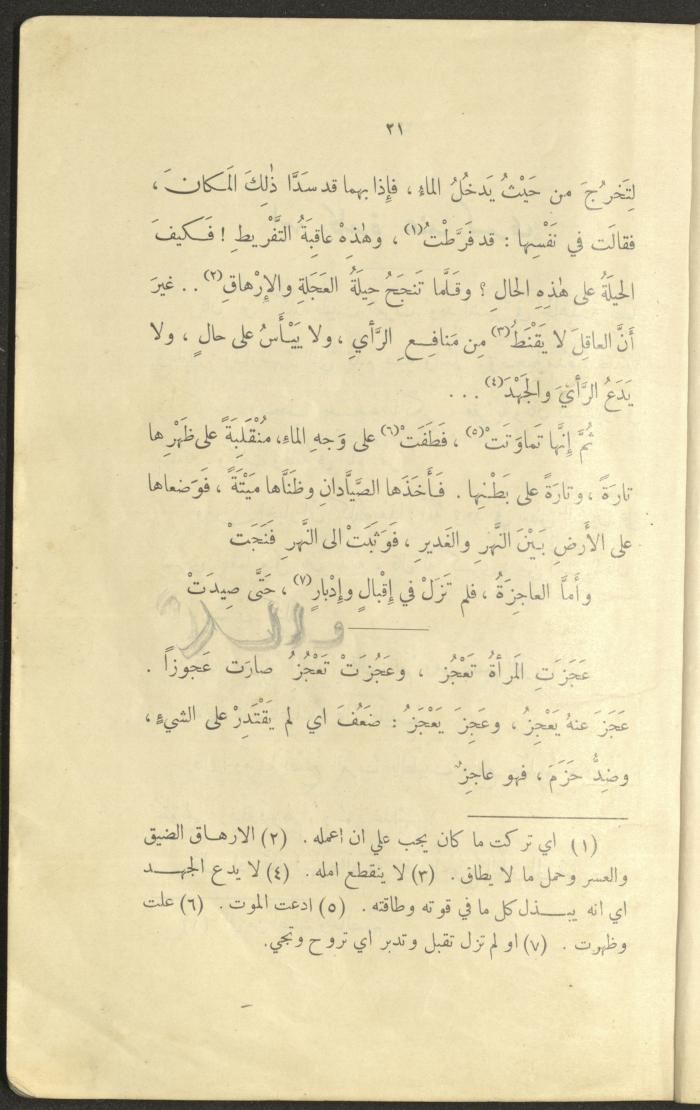 ٢١
لِتَخرُجَ من حَيْثُ يَدخُلُ الماء ، فإِذا بهما قد سَدَّا ذٰلِكَ المَكانَ ،
فقالَت في نَفْسِها : قد فَرَّطْتُ (١) ، وهٰذِهْ عاقِبَةُ التَّفْريطِ ! فَكيفَ
الحيلَةُ على هٰذِهِ الحالِ ؟ وقَلَّما تَنجَحُ حِيلَةُ العَجَلَةِ والإِرْهاقِ (٢) .. غيرَ
أَنَّ العاقِلَ لا يَقْنَطُ (٣) مِن مَنافِعِ الرَّأيِ ، ولا يَيْأَسُ على حالٍ ، ولا
يَدَعُ الرَّأيَ والجَهْدَ (٤) ...
ثُمَّ إِنَّها تَماوَتَتْ (٥) ، فَطَفَتْ (٦) على وَجهِ الماءِ، مُنْقَلِبَةً على ظَهْرِها
تارَةً ، وتارَةً على بَطْنِها . فَأَخَذَها الصَّيَّادانِ وظَنَّاها مَيْتَةً ، فَوَضعاها
على الأَرضِ بَيْنَ النَّهرِ والغَديرِ ، فَوَثَبَتْ الى النَّهرِ فَنَجَتْ
وأَمَّا العاجِزَةُ ، فلم تَزَلْ في إِقْبالٍ وإِدْبارٍ (٧) ، حَتَّى صِيدَتْ
عَجَزَتِ المَرأةُ تَعْجُز ، وعَجُزَتْ تَعْجُزُ صارَت عَجوزاً .
عَجَزَ عنهُ يَعْجِزُ ، وعَجِزَ يَعْجَزُ : ضَعُفَ اي لم يَقْتَدِرْ على الشيءِ ،
وضِدُّ حَزَمَ ، فهو عاجِزٌ
(١) اي تركت ما كان يجب علي ان اعمله . (٢) الارهاق الضيق
والعسر وحمل ما لا يطاق . (٣) لا ينقطع امله . (٤) لا يدع الجهد
اي انه يبذل كل ما في قوته وطاقته . (٥) ادعت الموت . (٦) علت
وظهرت . (٧) او لم تزل تقبل وتدبر اي تروح وتجي.